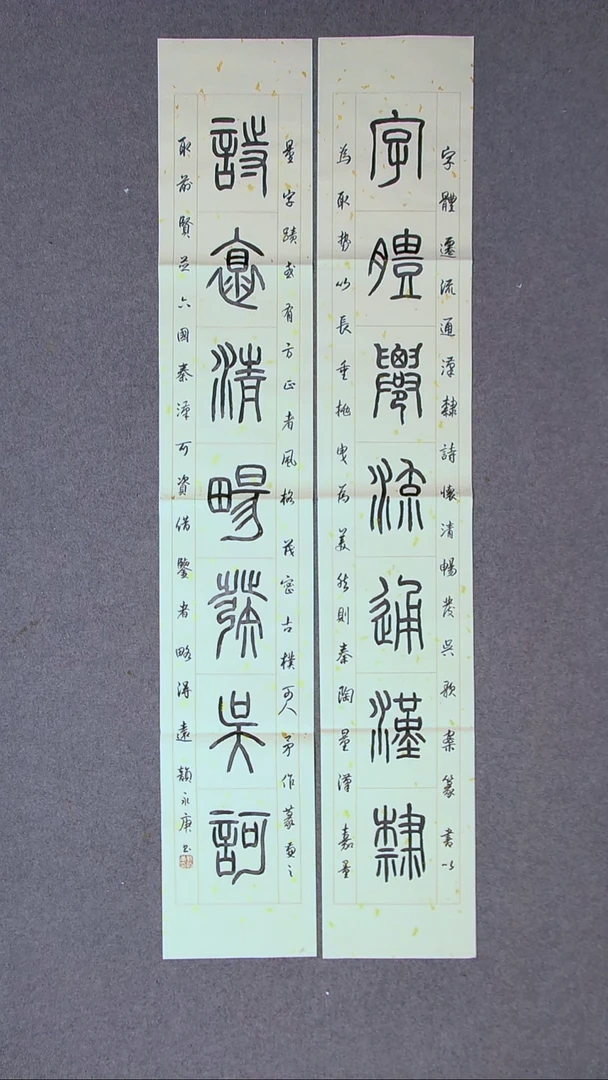 字體遷流通漢隸詩懷清暢發吳歌案篆書以
字體遷流通漢隸
為取勢以長垂搖曳為美然則秦陶量漢嘉量
量字蹟或有方正者風格茂密古樸可人予作篆
詩懷清暢發吳謌
取前賢足六國秦漢可資借鑒者略得遠韻永庚書